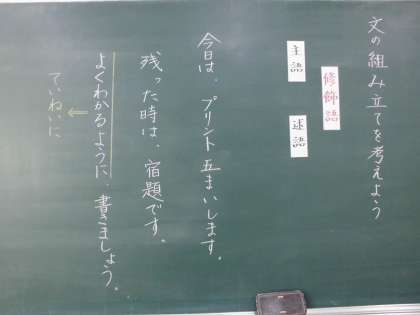 文の組み立てを考えよう
修飾語
主語
述語
今日は、プリント五まいします。
残った時は、宿題です。
よくわかるように、書きましょう。
ていねいに